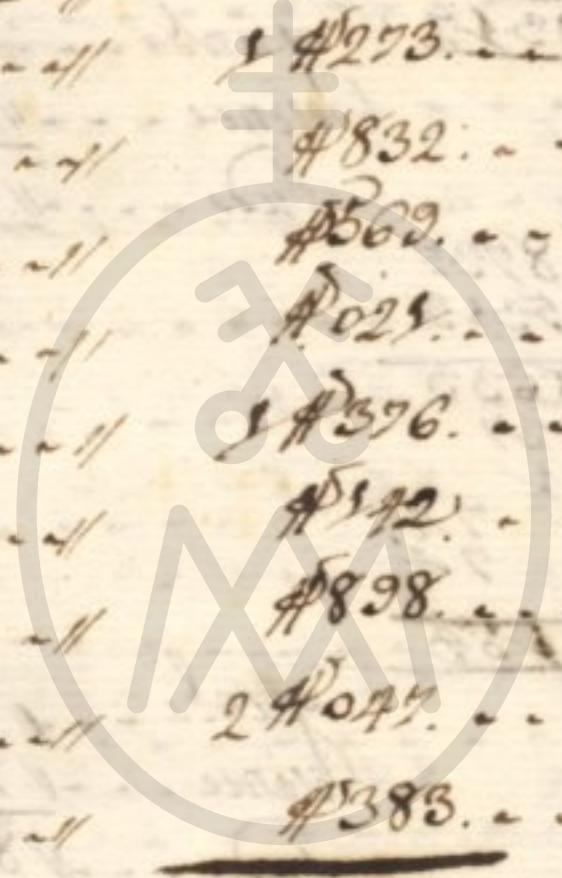 - - // 1 #273. - -
- - // #832. - -
- // #569. - -
- - // #021. - -
- - // 1 #376. - -
- - // #142. -
- // #898. - -
- - // 2 #047. - -
- // #383. - -